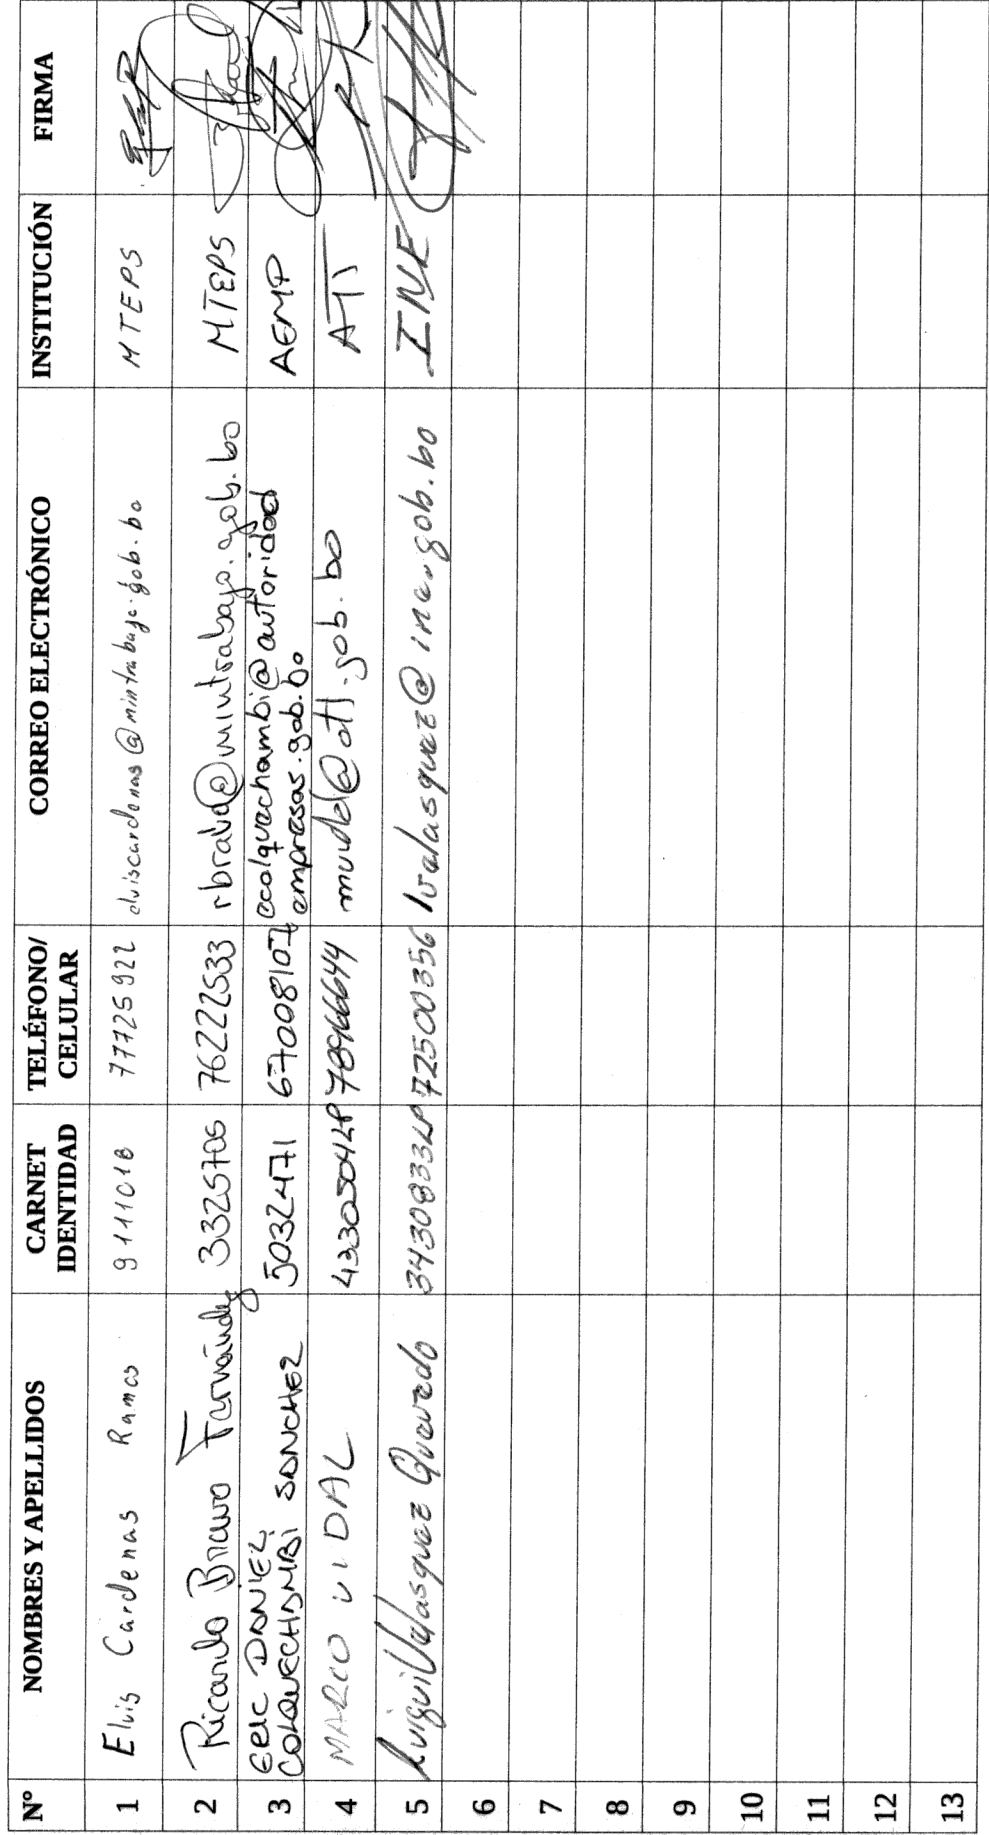 Nº NOMBRES Y APELLIDOS CARNET IDENTIDAD TELÉFONO/ CELULAR CORREO ELECTRÓNICO INSTITUCIÓN FIRMA
1 Elvis Cardenas Ramos 9111018 77725922 elviscardenas@mintrabajo.gob.bo MTEPS
2 Ricardo Bravo Fernández 3325705 76222533 rbravo@mintrabajo.gob.bo MTEPS
3 ERIC DANIEL COLQUECHAMBI SANCHEZ 5032471 67008107 ecolquechambi@autoridad empresas.gob.bo AEMP
4 MARCO VIDAL 4330504LP mvidal@att.gob.bo ATT
5 Luigui Velasquez Quevedo 3430833LP 72500356 lvelasquez@ine.gob.bo INE
6
7
8
9
10
11
12
13